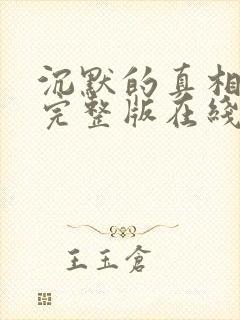 沉默的真相
完整版在綫
王玉倉